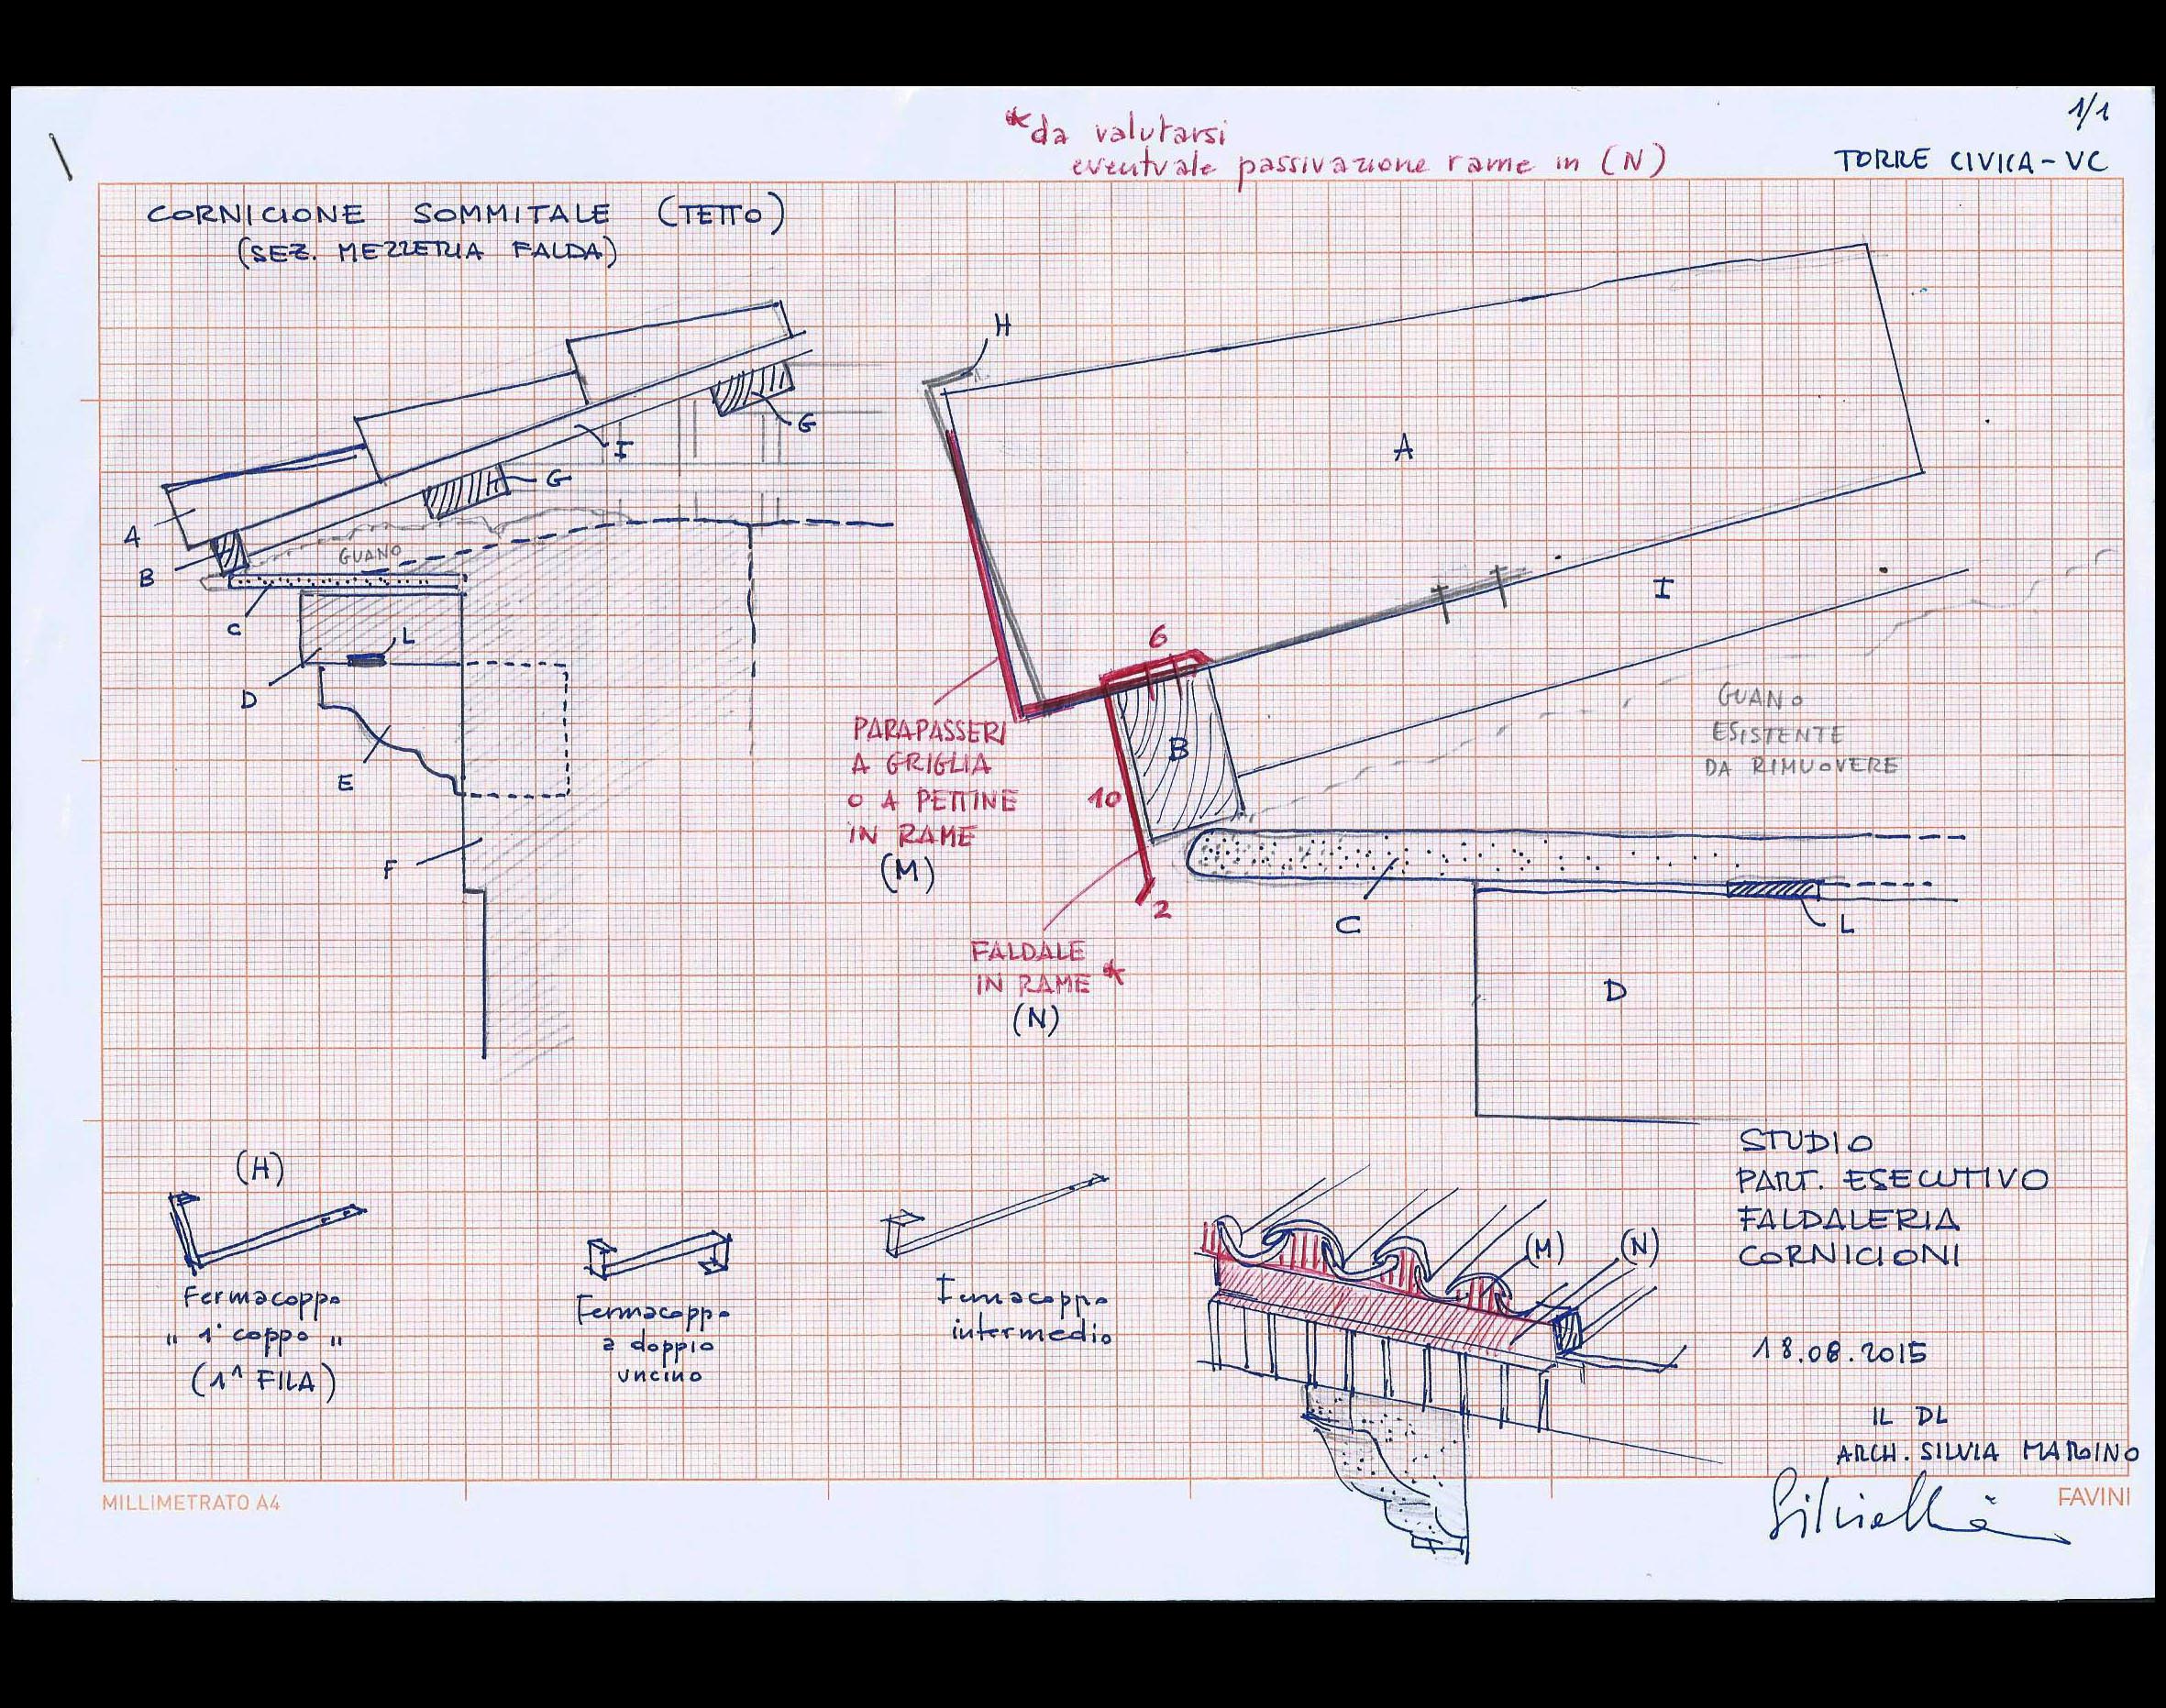 1/1
*da valutarsi
eventuale passivazione rame in (N)
TORRE CIVICA - VC
CORNICIONE SOMMITALE (TETTO)
(SEZ. MEZZERIA FALDA)
H
A
G
I
G
A
B
GUANO
C
L
D
E
F
I
6
B
10
2
PARAPASSERI
A GRIGLIA
O A PETTINE
IN RAME
(M)
GUANO
ESISTENTE
DA RIMUOVERE
FALDALE
IN RAME *
(N)
C
L
D
(H)
Fermacoppo
" 1° coppo "
(1^ FILA)
Fermacoppo
a doppio
uncino
Fermacoppo
intermedio
(M)
(N)
STUDIO
PART. ESECUTIVO
FALDALERIA
CORNICIONI
18.08.2015
IL DL
ARCH. SILVIA MARGINO
MILLIMETRATO A4
FAVINI